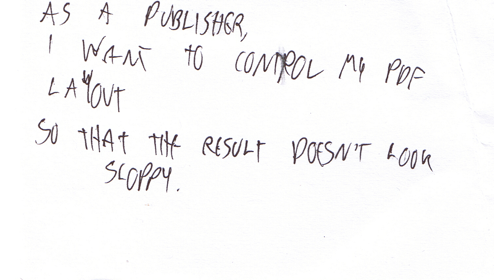 AS A PUBLISHER,
I WANT TO CONTROL MY PDF
LAYOUT
SO THAT THE RESULT DOESN'T LOOK
SLOPPY.